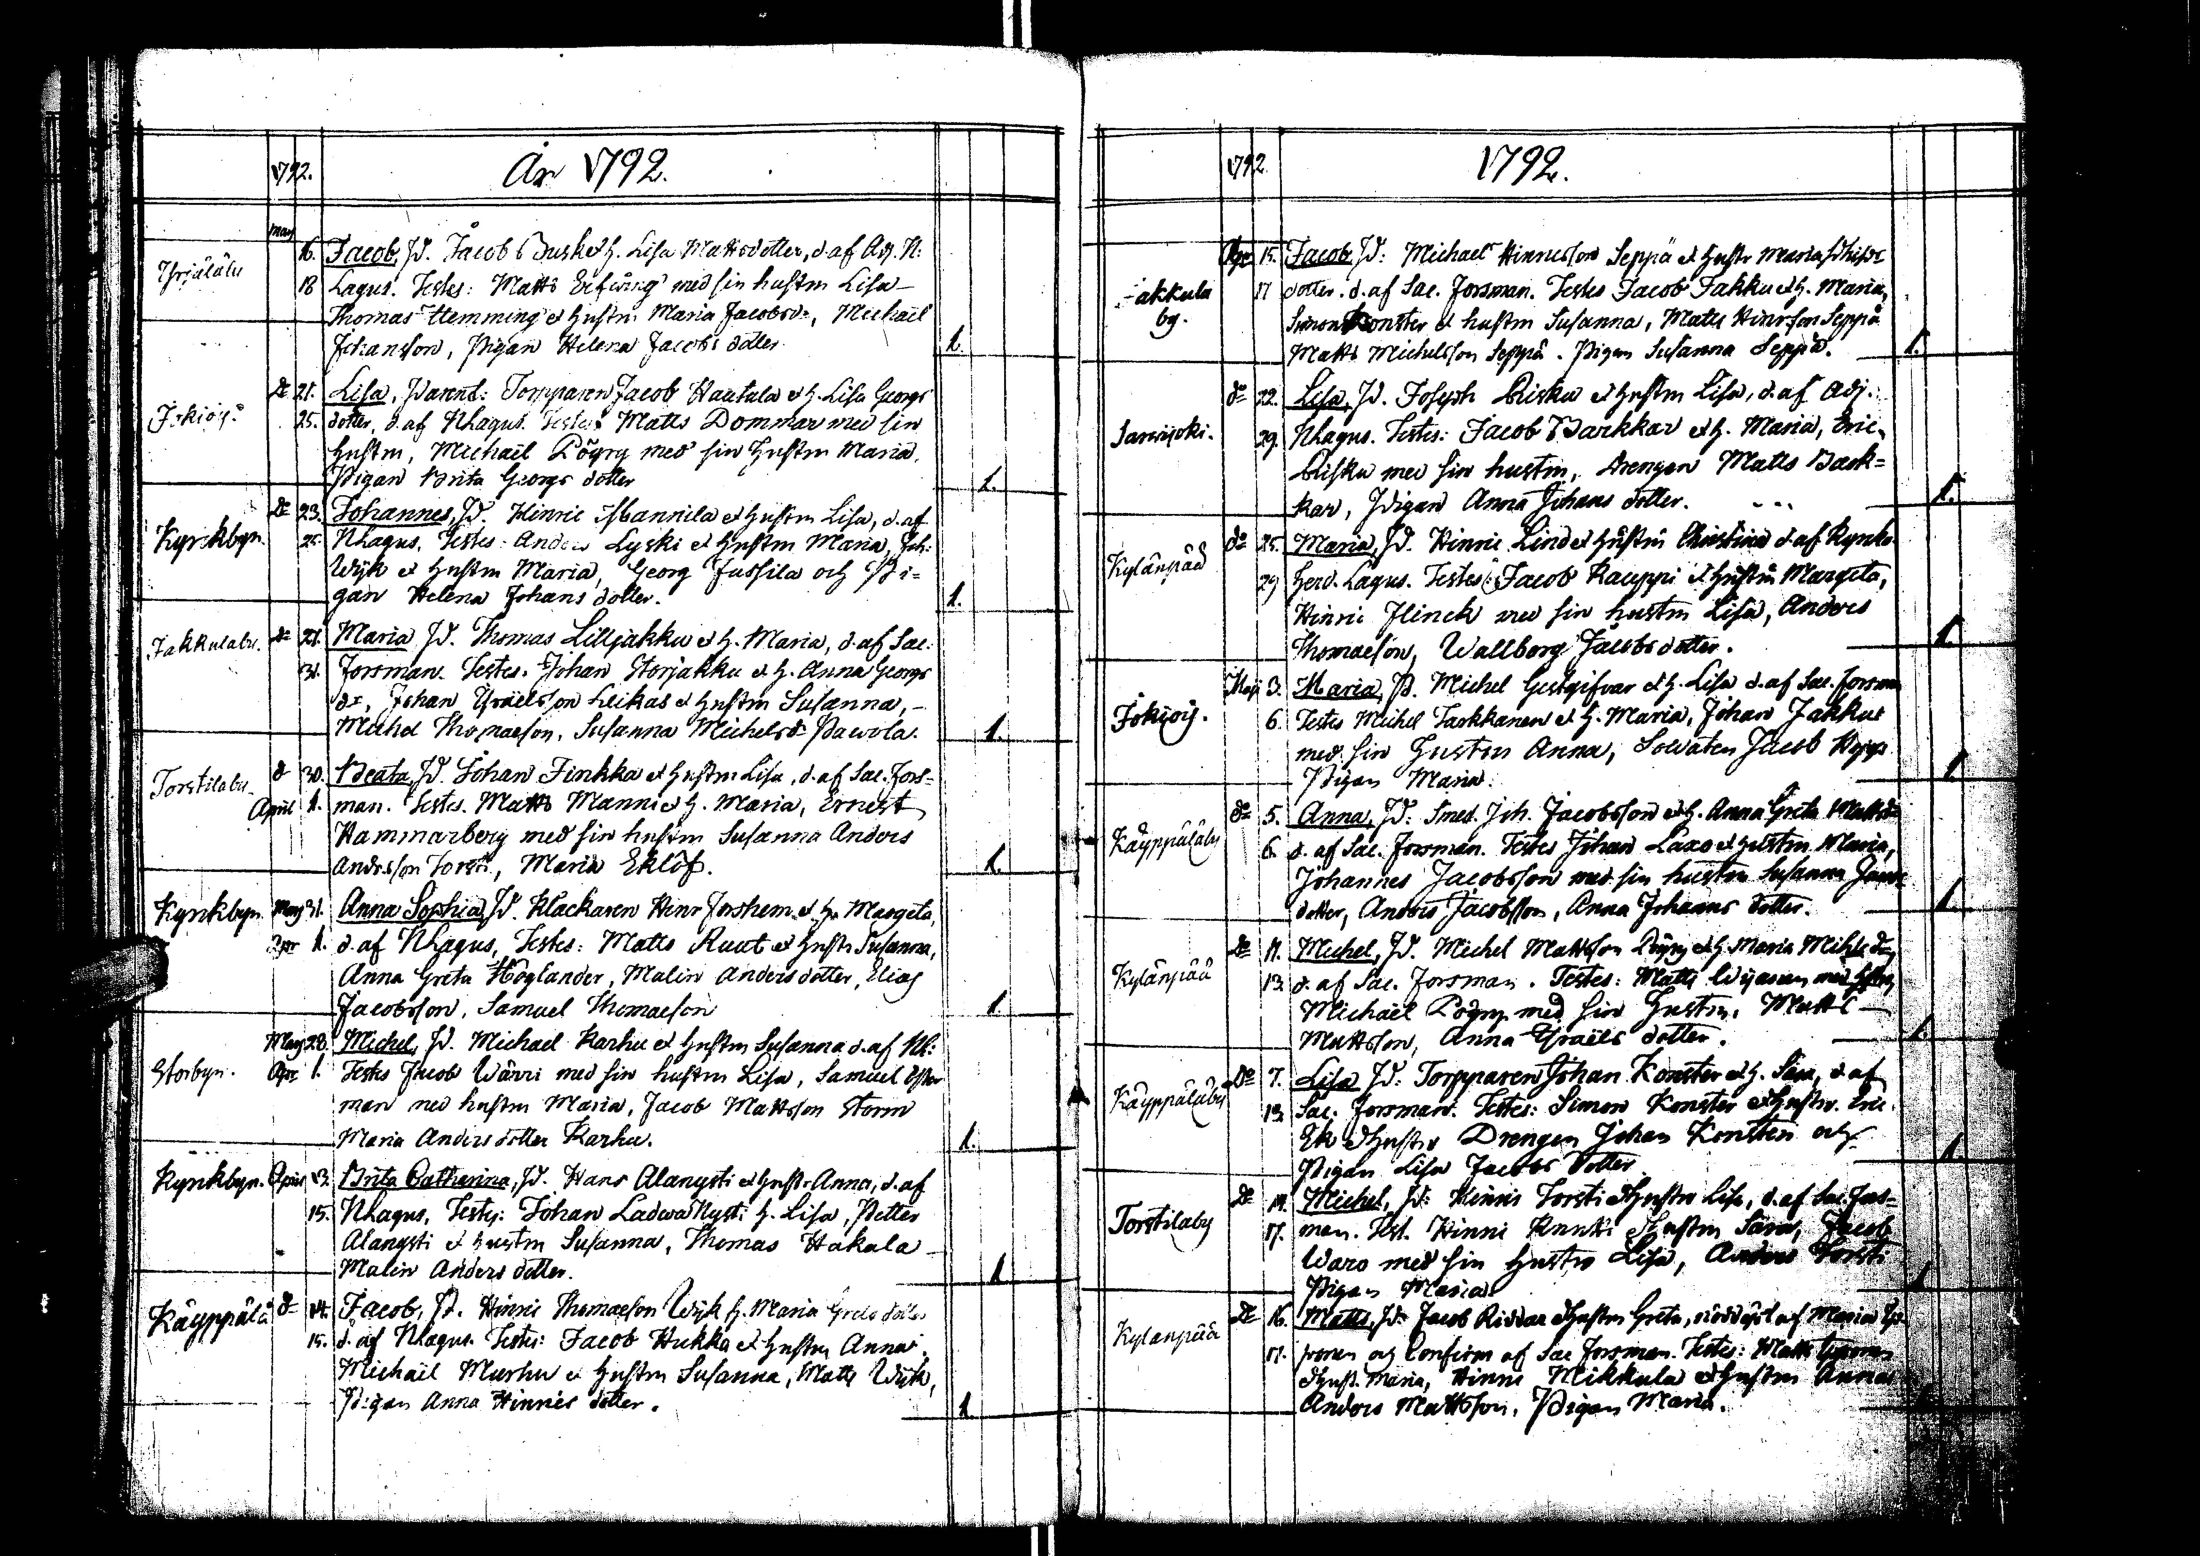 1792. År 1792.
Mars
Yrjäläby 16. Jacob, P. Jacob Busk et h. Lisa Mattsdotter, d. af Adj. N:
18 Lagus. Testes: Matts med sin hustru Lisa
Thomas Hemming et hustru Maria Jacobsdr, Michaël
Johansson, Pigan Helena Jacobs dotter. 1.
Jokijoij. De 21. Lisa, Parent: Torpparen Jacob Hautala et h. Lisa Georgs
25. dotter, d. af N Lagus. Testes Matts Dommar med sin
hustru, Michaël Pöyry med sin hustru Maria,
Pigan Brita Georgs dotter 1.
Kyrckbyn. De 23. Johannes, P. Hinric Mannila et hustru Lisa, d. af
25. N Lagus. Testes Anders Lyski et hustru Maria, Joh:
Wijk et hustru Maria, Georg Jussila och Pi=
gan Helena Johans dotter. 1.
Jakkulaby. De 27. Maria P. Thomas Lilljakku et h. Maria, d. af Sac.
31. Forsman. Testes. Johan Storjakku et h. Anna Georgs
dr, Johan Yraelsson Leikas et hustru Susanna, -
Michel Thomaeson, Susanna Michelsdr Pawola. 1.
Torstilaby. d 30. Beata, P. Johan Finkka et hustru Lisa, d. af Sac. Fors=
April 1. man. Testes. Matts Manni et h. Maria, Ernest
Hammarberg med sin hustru Susanna Anders
Andersson Torsti, Maria Eklöf. 1.
Kyrckbyn Mars 31. Anna Sophia, P. Klackaren Hinr Forshem et h. Margeta,
Apr 1. d. af N Lagus, Testes: Matts Ruut et hustr Susanna,
Anna Greta Höglander, Malin Anders dotter, Elias
Jacobsson, Samuel Thomaeson 1.
Storbyn. Mars 28. Michel, P. Michael Karhu et hustru Susanna d. af
Apr 1. Testes Jacob Wärri med sin hustru Lisa, Samuel Öster
man med hustru Maria, Jacob Mattsson Storm
Maria Anders dotter Karhu. 1.
Kyrckbyn. April 13. Brita Catharina, P. Hans Alanysti et hustr Anna, d. af
15. N Lagus, Testes: Johan Ladwa Nysti h. Lisa, Petter
Alanysti et hustru Susanna, Thomas Hakala
Malin Anders dotter. 1
Käyppälä d 14. Jacob, P. Hinric Thomaeson Wijk h. Maria Grels dotter
15. d. af N Lagus. Testes: Jacob Hukka et hustru Anna,
Michaël Murhu et hustru Susanna, Matts Wijk,
Pigan Anna Hinrics dotter. 1.
1792 1792.
Jakkula Apr 15. Jacob P: Michael Hinricsson Seppä et hustr Maria
by. 17 dotter. d. af Sac. Forsman. Testes Jacob Jakku et h. Maria,
Simon Konster et hustru Susanna, Matts Hinrsson Seppä
Matts Michelsson Seppä. Pigan Susanna Seppä. 1.
Jarwijoki. do 22. Lisa, P. Joseph Risku et hustru Lisa, d. af Adj.
29. N Lagus. Testes: Jacob Barkkar et h. Maria, Eric
Risku med sin hustru, Drengen Matts Back=
kar, Pigan Anna Johans dotter. 1.
Kylänpää do 25. Maria, P. Hinric Lind et hustru Christina d. af Kyrko
29 herd. Lagus. Testes: Jacob Kauppi et hustru Margeta,
Hinric Flinck med sin hustru Lisa, Anders
Thomaeson, Wallborg Jacobs dotter. 1.
Jokijoij. Maji 3. Maria, P. Michel Gestgifvar et h. Lisa d. af Sac. Forsman
6. Testes Michel Tarkkanen et h. Maria, Johan Jakku
med sin hustru Anna, Soldaten Jacob
Pigan Maria. 1
Käyppäläby do 5. Anna, P: Smed. Joh. Jacobsson et h. Anna Greta Mattsdr
6. d. af Sac. Forsman. Testes Johan Laxo et hustru Maria,
Johannes Jacobsson med sin hustru Susanna
dotter, Anders Jacobsson, Anna Johans dotter. 1.
Kylänpää De 11. Michel, P. Michel Mattsson Pöyry et h. Maria
13. d. af Sac. Forsman. Testes: Matts med hustru,
Michaël Pöyry med sin hustru, Matts
Mattsson, Anna Yraëls dotter. 1.
Käyppäläby Do 7. Lisa P: Torpparen Johan Konster et h. Sara, d. af
13. Sac. Forsman. Testes: Simon Konster et hustr. Eric
Ek et hustru Drengen Johan Konster och
Pigan Lisa Jacobs dotter 1.
Torstilaby De 14. Michel, P: Hinric Torsti et hustru Lisa, d. af Sac. Fors=
17. man. Test. Hinric et hustru Sara, Jacob
Waro med sin hustru Lisa, Anders Torsti
Pigan Maria. 1
Kylänpää De 16. Matts, P: Jacob Riddar et hustru Greta, nöddöpt af Maria
17. och Confirm af Sac Forsman. Testes: Matts
et hust. Maria, Hinric Mikkula et hustru Anna
Anders Mattsson, Pigan Maria.